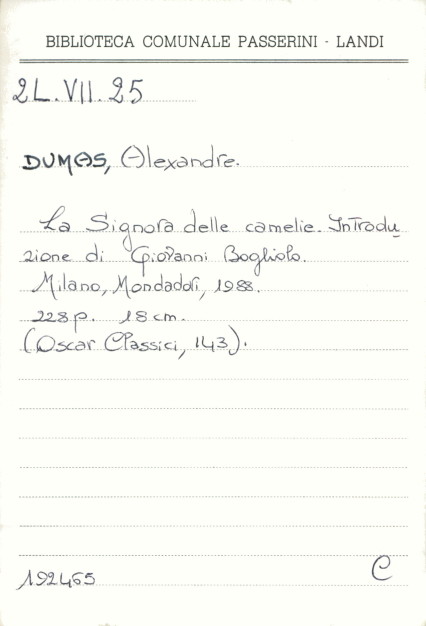 BIBLIOTECA COMUNALE PASSERINI - LANDI
2L.VII.25
DUMAS, Alexandre.
La Signora delle camelie. Introdu
zione di Giovanni Bogliolo.
Milano, Mondadori, 1988.
228 p. 18 cm.
(Oscar Classici, 143).
192465
C